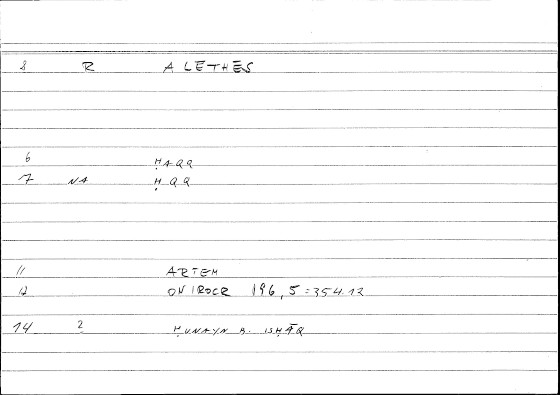 8 R ALĒTHĒS
6 ḤAQQ
7 NA ḤQQ
11 ARTEM
12 ONIROCR 196, 5 = 354.12
14 2 ḤUNAYN B. ISḤĀQ